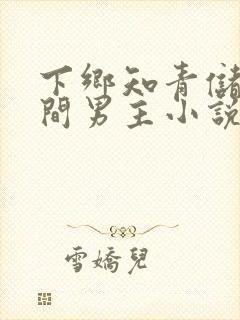 下鄉知青儲
間男主小說
雪嬌兒